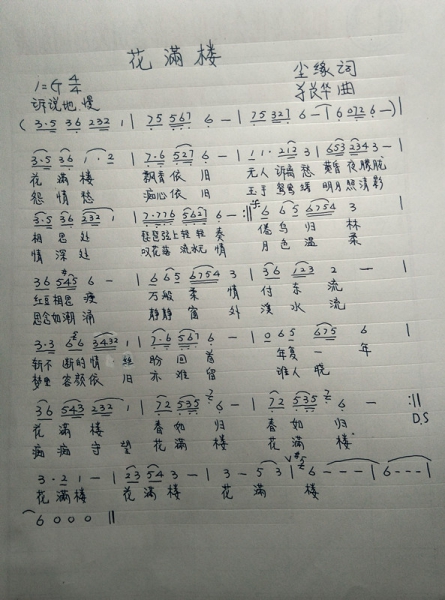 花满楼
1=G 4/4
尘缘词
诉说地 慢
曲
( 3·5 36 232 1 | 75 567 6 - | 75 327 6 - | 6072 6 - ) |
3·5 36 1·2 | 7·6 527 6 - | 1 1·212 3 | 653 234 3 - |
花满楼 飘香依旧 无人诉离愁 黄昏夜朦胧
怨情愁 痴心依旧 玉手鸳鸯绣 明月照清影
3·5 35 232 1 | 7·776 5627 6 - :|| 6 65 6754 3 |
相思处 琵琶弦上轻轻奏 倦鸟归林
情深处 叹花落流水无情 月色温柔
36 #545 6 - | 65 65 6754 3 | 36 123 2 - |
红豆相思瘦 万般柔情付东流
思念如潮涌 静静窗外溪水流
3·3 6 3432 1 | 7·6 567 6 - | 0 65 675 6 |
斩不断的情丝盼回首 年复一年
梦里容颜依旧亦难留 谁人晓
36 543 232 1 | 72 535 6 - | 72 535 6 - :||
花满楼 春如归 春如归 D.S
痴痴守望花满楼 花满楼
3·2 1 - | 23 54 3 - | 3 - 5 3 | 6 - - - | 6 - - - |
花满楼 花满楼 花满楼
6 0 0 0 ||